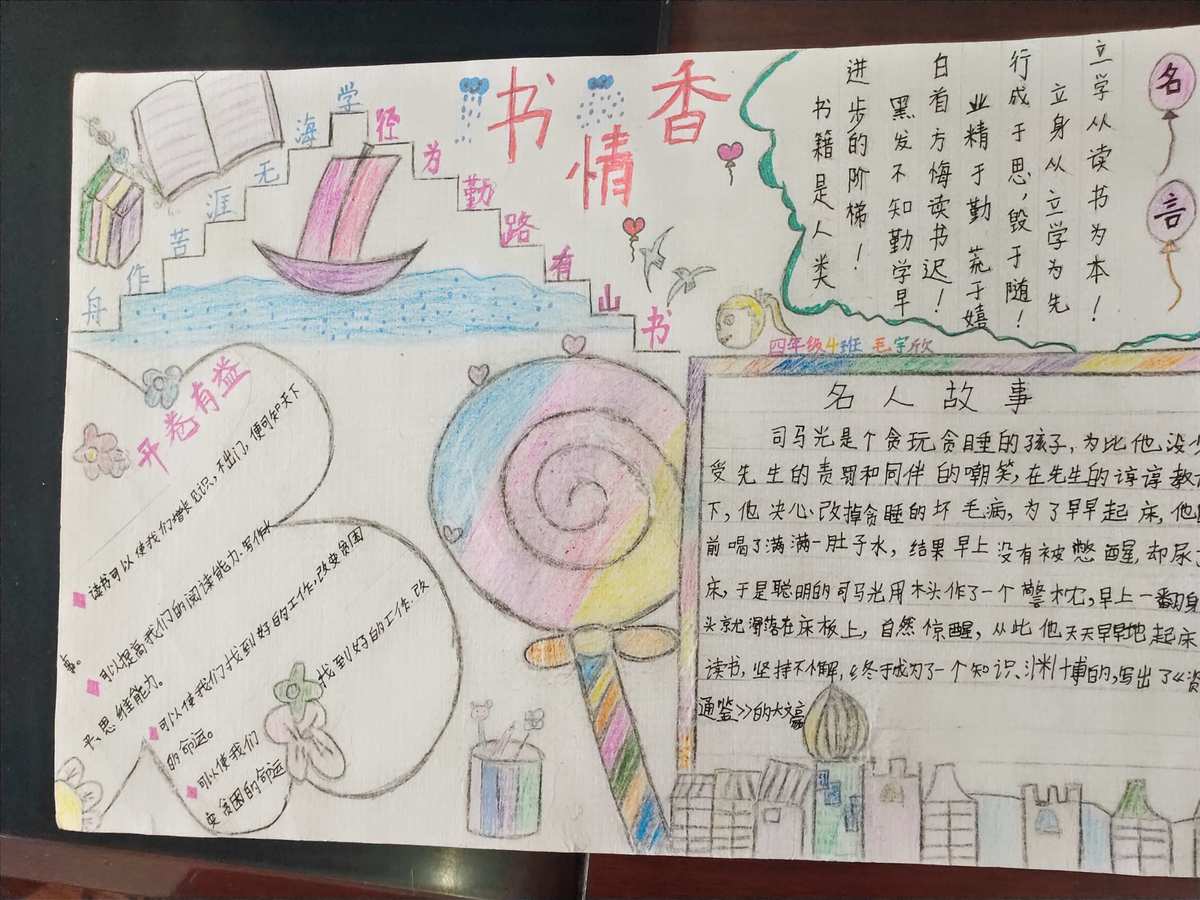 书香情
书山有路勤为径
学海无涯苦作舟
名言
立学从读书为本！
立身从立学为先
行成于思，毁于随！
业精于勤 荒于嬉
白首方悔读书迟！
黑发不知勤学早
进步的阶梯！
书籍是人类
四年级4班 毛宇欣
开卷有益
读书可以使我们增长见识，不出门，便可知天下
事。
可以提高我们的阅读能力、写作水
平、思维能力。
可以使我们找到好的工作，改变贫困
的命运。
可以使我们
找到好的工作，改
变贫困的命运
名人故事
司马光是个贪玩贪睡的孩子，为此他没少
受先生的责罚和同伴的嘲笑，在先生的谆谆教
下，他决心改掉贪睡的坏毛病，为了早早起床，他
前喝了满满一肚子水，结果早上没有被憋醒，却尿
床，于是聪明的司马光用木头作了一个警枕，早上一翻身
头就滑落在床板上，自然惊醒，从此他天天早早地起床
读书，坚持不懈，终于成为了一个知识渊博的，写出了《资
通鉴》的大文豪